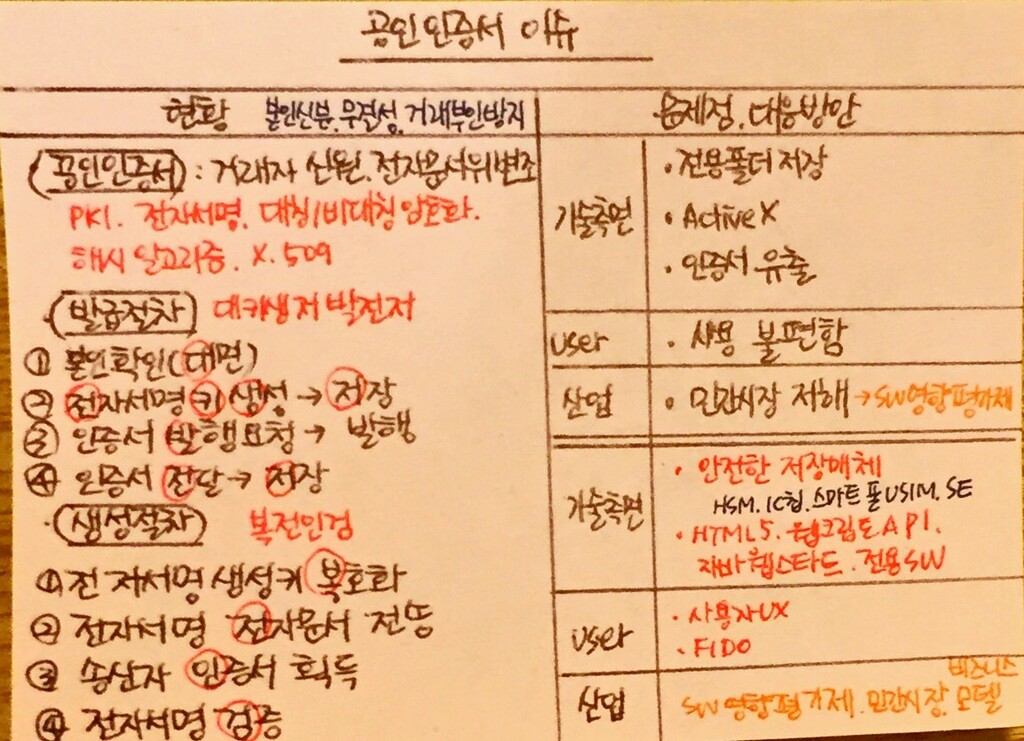 공인인증서 이슈
현황 본인신분, 무결성, 거래부인방지
(공인인증서) : 거래자 신원, 전자문서위변조
PKI, 전자서명, 대칭/비대칭 암호화,
해시 알고리즘, X.509
(발급절차) 대키생저 발전저
① 본인확인(대면)
② 전자서명 키 생성 → 저장
③ 인증서 발행요청 → 발행
④ 인증서 전달 → 저장
(생성절차) 복전인검
① 전자서명생성키 복호화
② 전자서명 전자문서 전송
③ 송신자 인증서 획득
④ 전자서명 검증
문제점, 대응방안
기술측면
• 전용폴더 저장
• ActiveX
• 인증서 유출
user • 사용 불편함
산업 • 민간시장 저해 → SW영향평가제
기술측면
• 안전한 저장매체
HSM, IC칩, 스마트폰USIM, SE
• HTML5, 웹크립토API,
자바웹스타드, 전용SW
user
• 사용자UX
• FIDO
산업 SW영향평가제, 민간시장, 비즈니스 모델